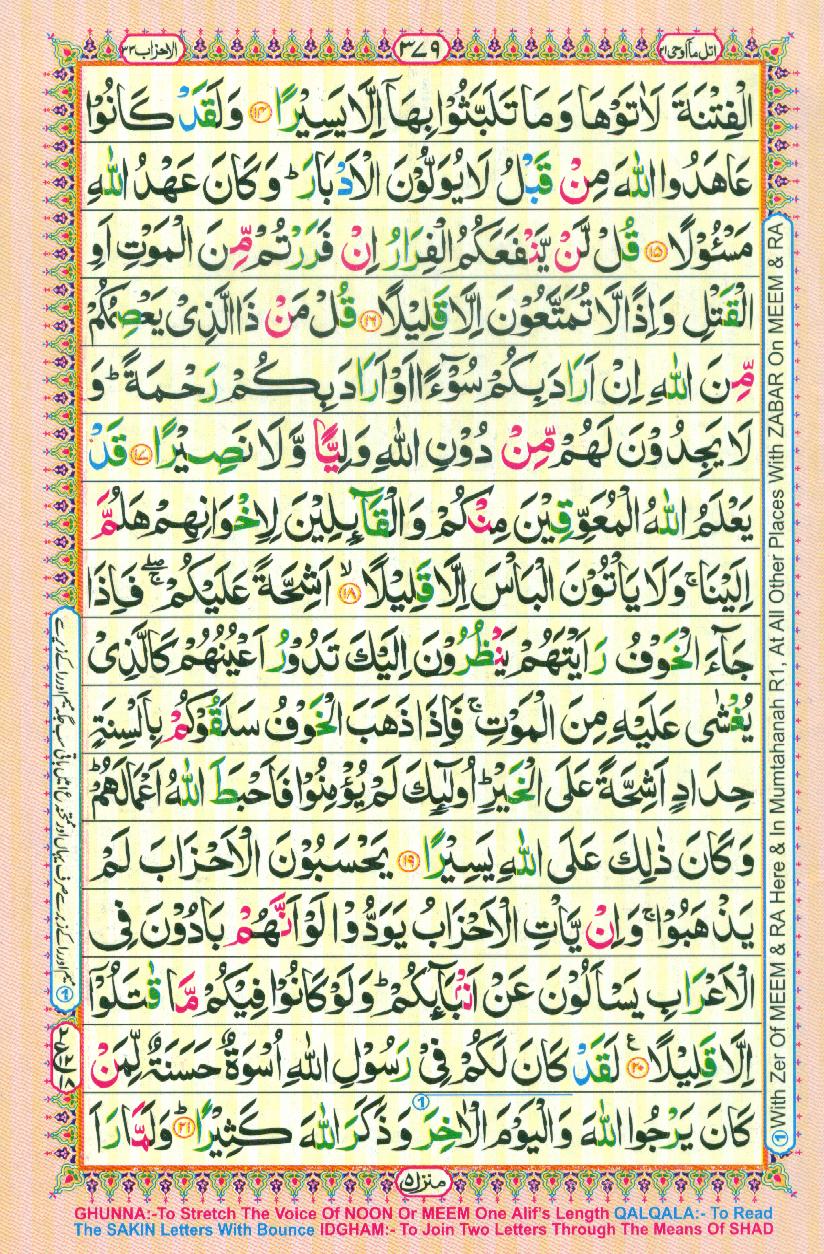 اتل ما اوحی ۲۱
۳۷۹
الاحزاب ۳۳
الْفِتْنَةَ لَاٰتَوْهَا وَمَا تَلَبَّثُوْا بِهَاۤ اِلَّا يَسِيْرًا ۝۱۴ وَلَقَدْ كَانُوْا
عَاهَدُوا اللّٰهَ مِنْ قَبْلُ لَا يُوَلُّوْنَ الْاَدْبَارَ ؕ وَكَانَ عَهْدُ اللّٰهِ
مَسْـُٔوْلًا ۝۱۵ قُلْ لَّنْ يَّنْفَعَكُمُ الْفِرَارُ اِنْ فَرَرْتُمْ مِّنَ الْمَوْتِ اَوِ
الْقَتْلِ وَاِذًا لَّا تُمَتَّعُوْنَ اِلَّا قَلِيْلًا ۝۱۶ قُلْ مَنْ ذَا الَّذِىْ يَعْصِمُكُمْ
مِّنَ اللّٰهِ اِنْ اَرَادَ بِكُمْ سُوْٓءًا اَوْ اَرَادَ بِكُمْ رَحْمَةً ؕ وَ
لَا يَجِدُوْنَ لَهُمْ مِّنْ دُوْنِ اللّٰهِ وَلِيًّا وَّلَا نَصِيْرًا ۝۱۷ قَدْ
يَعْلَمُ اللّٰهُ الْمُعَوِّقِيْنَ مِنْكُمْ وَالْقَآٮِٕلِيْنَ لِاِخْوَانِهِمْ هَلُمَّ
اِلَيْنَا ۚ وَلَا يَاْتُوْنَ الْبَاْسَ اِلَّا قَلِيْلًا ۙ ۝۱۸ اَشِحَّةً عَلَيْكُمْ ۖۚ فَاِذَا
جَآءَ الْخَوْفُ رَاَيْتَهُمْ يَنْظُرُوْنَ اِلَيْكَ تَدُوْرُ اَعْيُنُهُمْ كَالَّذِىْ
يُغْشٰى عَلَيْهِ مِنَ الْمَوْتِ ۚ فَاِذَا ذَهَبَ الْخَوْفُ سَلَقُوْكُمْ بِاَلْسِنَةٍ
حِدَادٍ اَشِحَّةً عَلَى الْخَيْرِ ؕ اُولٰٓٮِٕكَ لَمْ يُؤْمِنُوْا فَاَحْبَطَ اللّٰهُ اَعْمَالَهُمْ ؕ
وَكَانَ ذٰلِكَ عَلَى اللّٰهِ يَسِيْرًا ۝۱۹ يَحْسَبُوْنَ الْاَحْزَابَ لَمْ
يَذْهَبُوْا ۚ وَاِنْ يَّاْتِ الْاَحْزَابُ يَوَدُّوْا لَوْ اَنَّهُمْ بَادُوْنَ فِى
الْاَعْرَابِ يَسْاَلُوْنَ عَنْ اَنْۢبَآٮِٕكُمْ ؕ وَلَوْ كَانُوْا فِيْكُمْ مَّا قٰتَلُوْۤا
اِلَّا قَلِيْلًا ۝۲۰ ع لَقَدْ كَانَ لَكُمْ فِىْ رَسُوْلِ اللّٰهِ اُسْوَةٌ حَسَنَةٌ لِّمَنْ
كَانَ يَرْجُوا اللّٰهَ وَالْيَوْمَ الْاٰخِرَ وَذَكَرَ اللّٰهَ كَثِيْرًا ؕ ۝۲۱ وَلَمَّا رَاَ
①
منزل ۵
① With Zer Of MEEM & RA Here & In Mumtahanah R1, At All Other Places With ZABAR On MEEM & RA
GHUNNA:-To Stretch The Voice Of NOON Or MEEM One Alif's Length QALQALA:- To Read
The SAKIN Letters With Bounce IDGHAM:- To Join Two Letters Through The Means Of SHAD